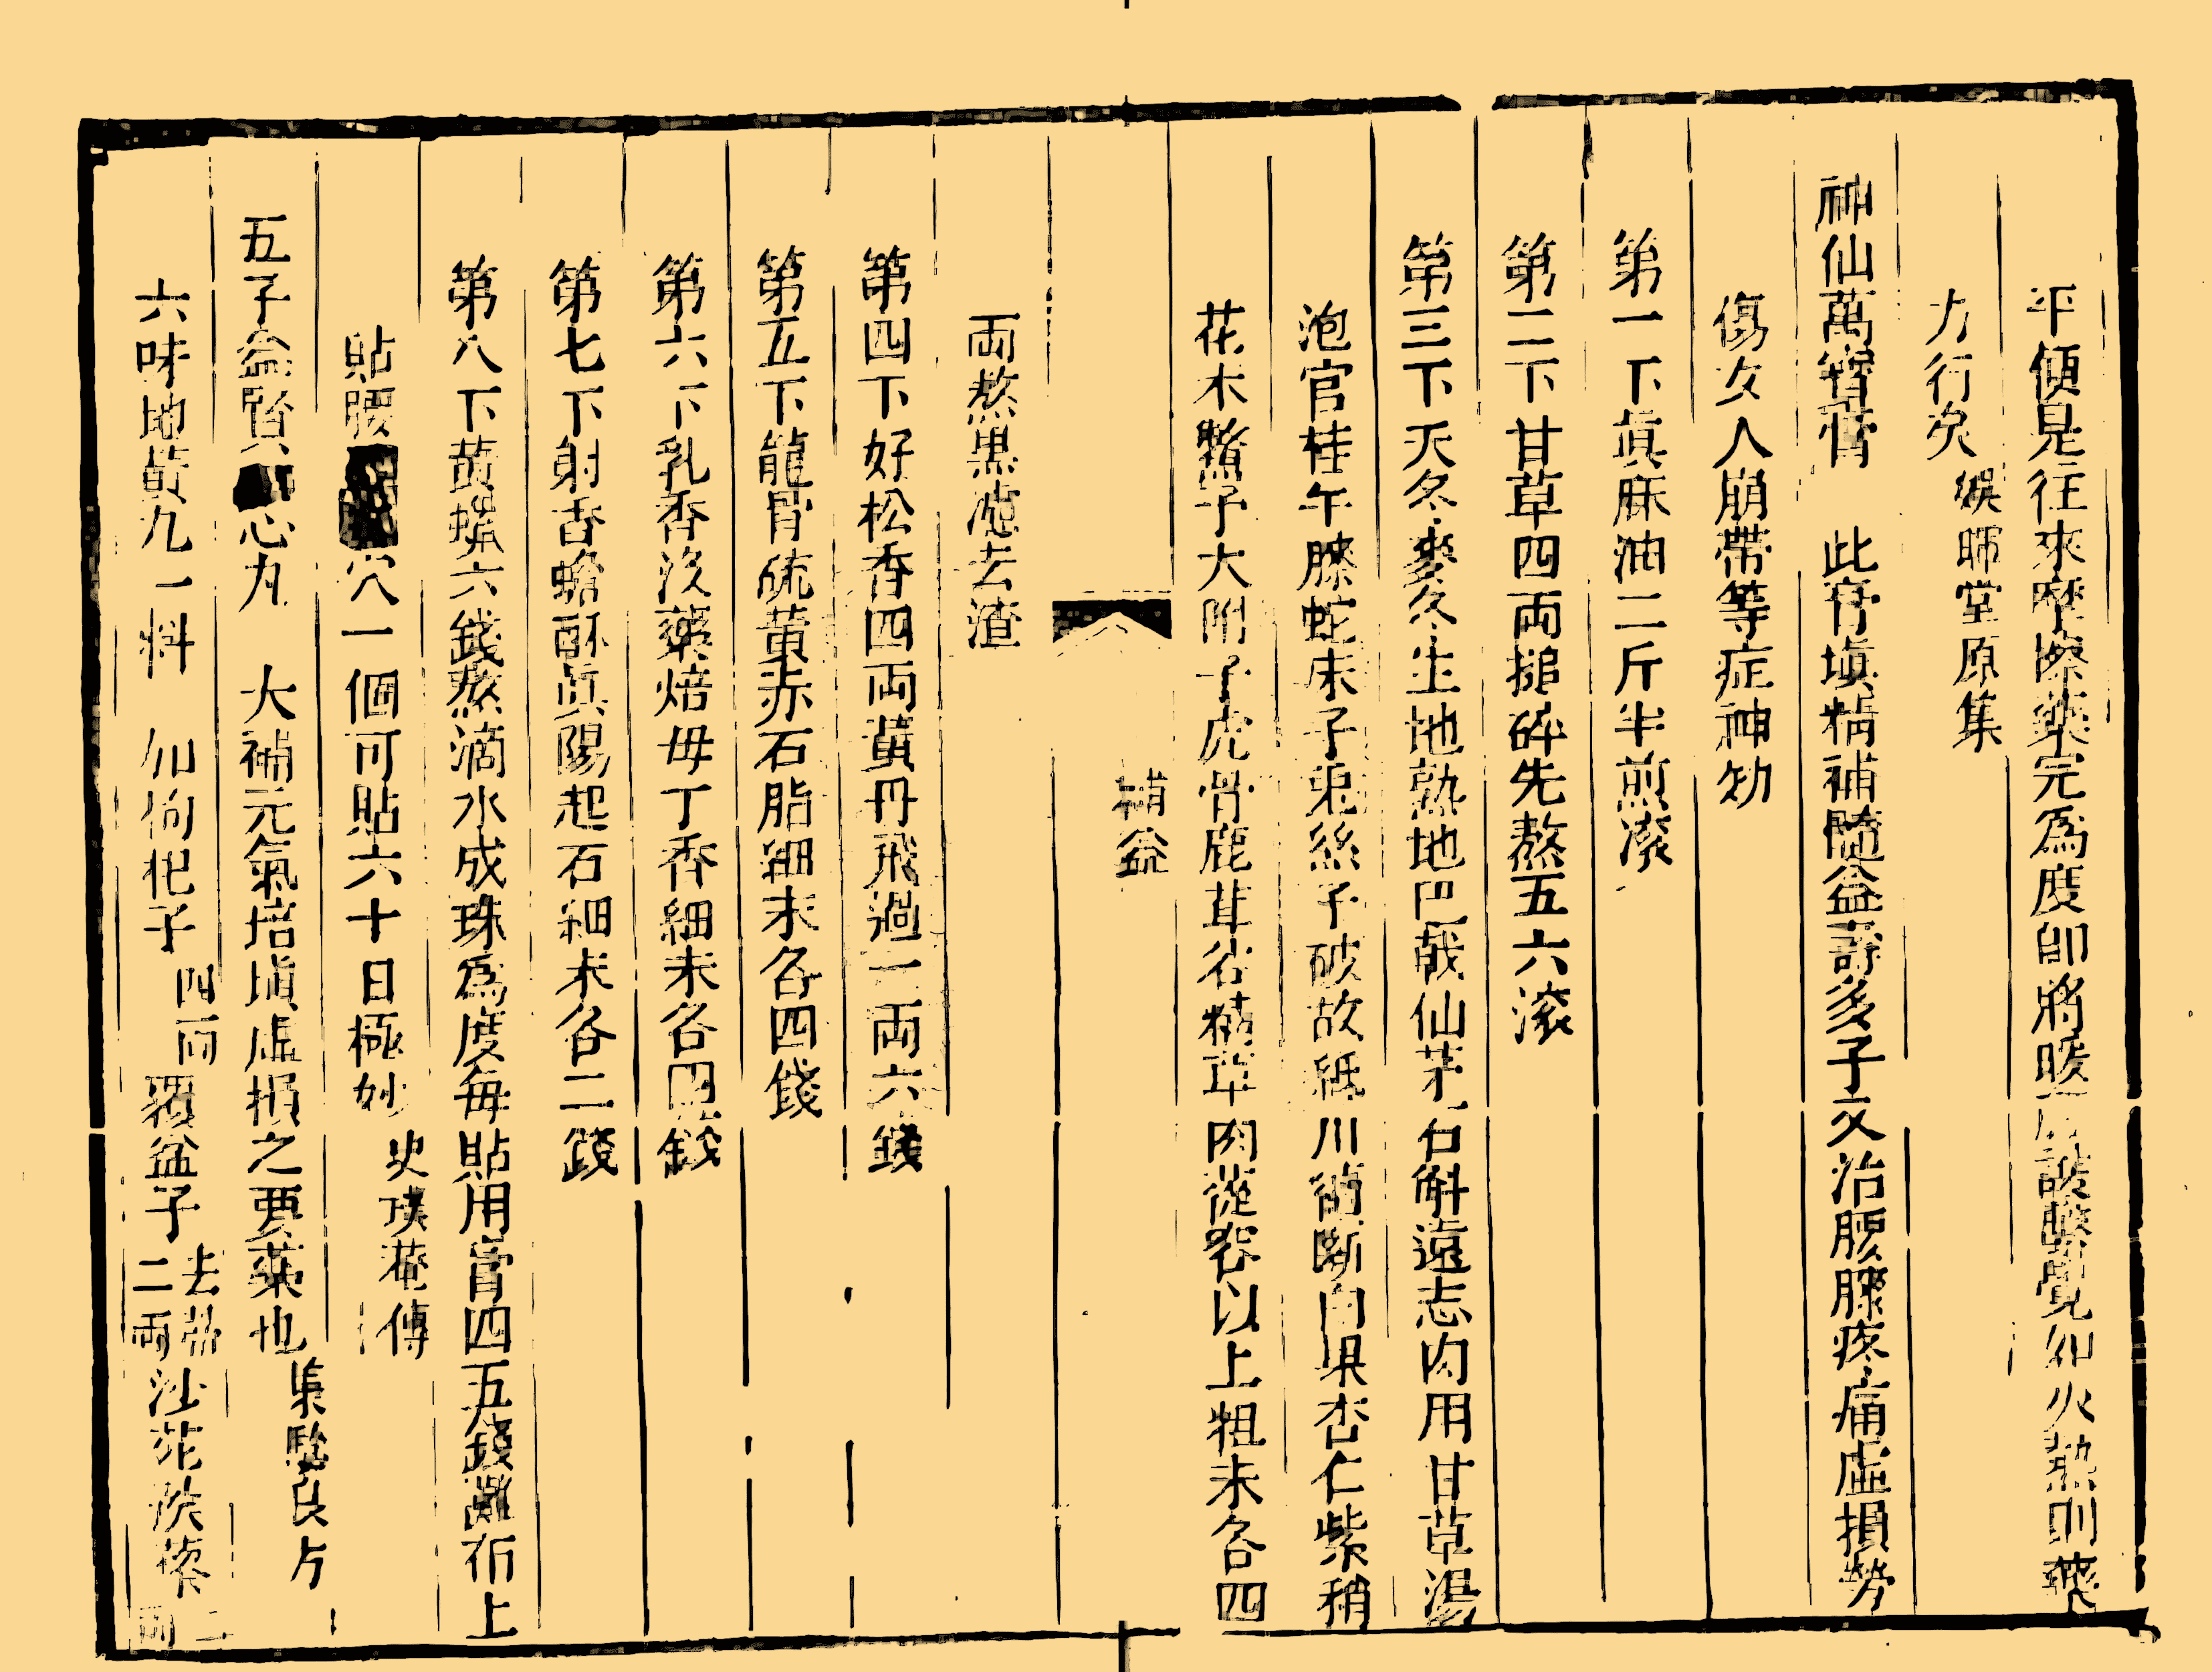 平便是往來摩擦藥完爲度即將暖　　設臍覺如火熱則藥
力行矣　　煥暉堂原集
神仙萬寶膏　此膏塡精補髓益壽多子又治腰膝疼痛虛損勞
傷女人崩帶等症神効
第一下眞麻油二斤半煎滚
第二下甘草四両搥碎先熬五六滚
第三下天冬麥冬生地熟地巴戟仙茅石斛遠志肉用甘草湯
泡官桂牛膝蛇床子兎絲子破故紙川續斷肉果杏仁紫稍
花木鱉子大附子虎骨鹿茸谷精草肉蓯蓉以上粗末各四
補益
両熬黒濾去渣
第四下好松香四両黃丹飛過一両六錢
第五下龍骨硫黃赤石脂細末各四錢
第六下乳香沒藥焙母丁香細末各四錢
第七下射香蟾酥眞陽起石細末各二錢
第八下黃蠟六錢熬滴水成珠爲度每貼用膏四五錢攤　上
貼腰　穴一個可貼六十日極妙　史　菴傳
五子益腎　心丸　大補元氣培塡虛損之要藥也　集驗良方
六味地黃丸一料　加枸杞子四両　覆盆子去蒂二両　沙苑蒺藜二両